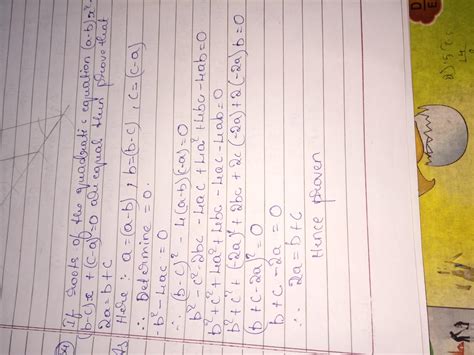 If roots of the quadratic equation (a-b)x²
(b-c)x + (c-a) = 0 are equal then prove that
2a = b + c
Here : a = (a-b) , b = (b-c) , c = (c-a)
∴ Determine = 0.
∴ b² - 4ac = 0
∴ (b-c)² - 4(a-b)(c-a) = 0
b² + c² - 2bc - 4ac + 4a² + 4bc - 4ab = 0
b² + c² + 4a² + 4bc - 4ac - 4ab = 0
b² + c² + (-2a)² + 2bc + 2c(-2a) + 2(-2a)b = 0
(b + c - 2a)² = 0
b + c - 2a = 0
∴ 2a = b + c
Hence proven